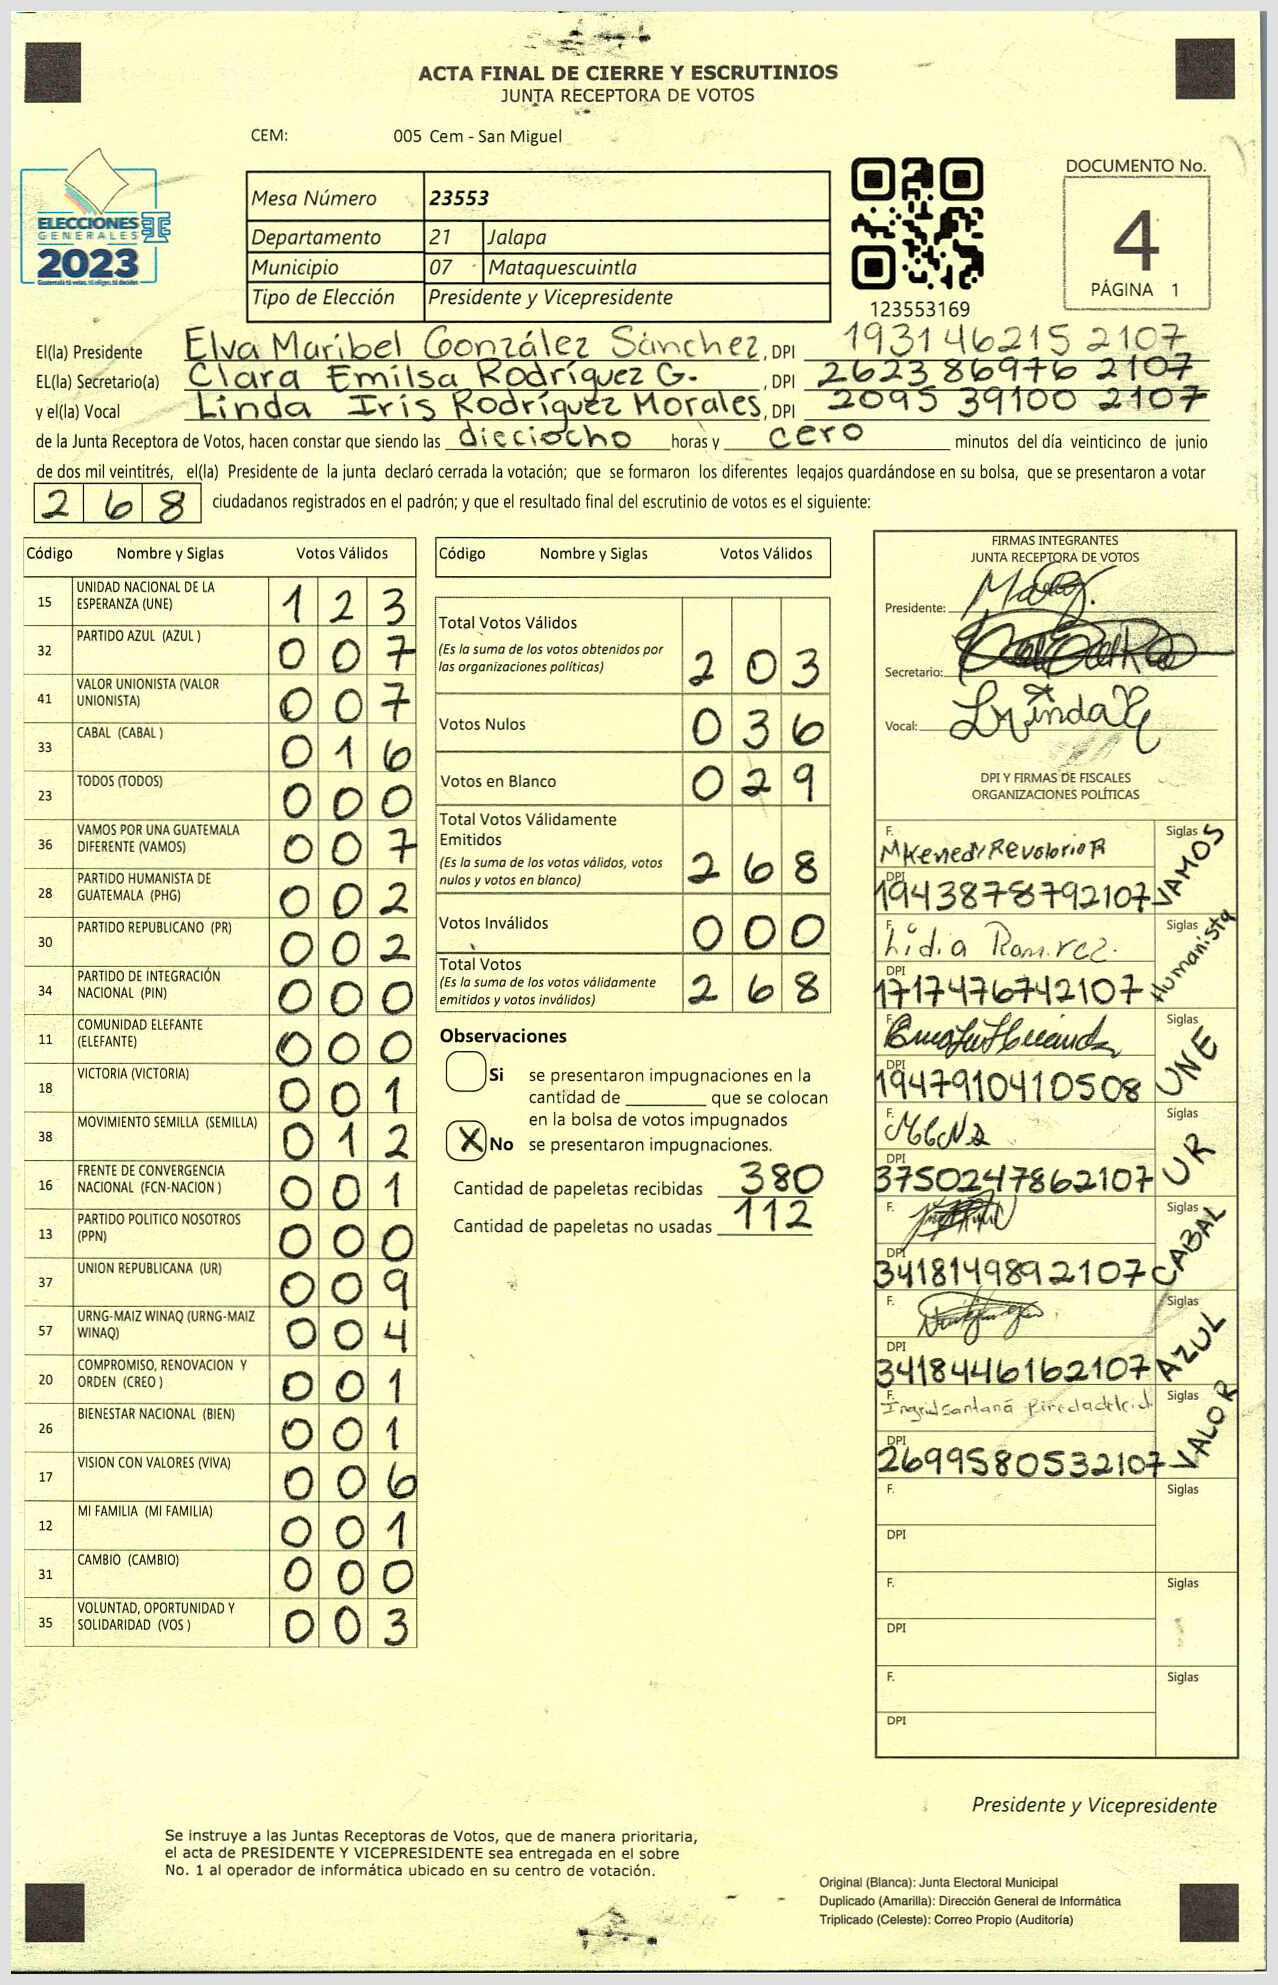 ACTA FINAL DE CIERRE Y ESCRUTINIOS
JUNTA RECEPTORA DE VOTOS
CEM: 005 Cem - San Miguel
ELECCIONES
GENERALES
2023
Guatemala tú votas, tú eliges, tú decides
Mesa Número 23553
Departamento 21 Jalapa
Municipio 07 Mataquescuintla
Tipo de Elección Presidente y Vicepresidente
123553169
DOCUMENTO No.
4
PÁGINA 1
El(la) Presidente Elva Maribel González Sánchez, DPI 1931 46215 2107
EL(la) Secretario(a) Clara Emilsa Rodríguez G. , DPI 2623 86976 2107
y el(la) Vocal Linda Iris Rodríguez Morales, DPI 2095 39100 2107
de la Junta Receptora de Votos, hacen constar que siendo las dieciocho horas y cero minutos del día veinticinco de junio
de dos mil veintitrés, el(la) Presidente de la junta declaró cerrada la votación; que se formaron los diferentes legajos guardándose en su bolsa, que se presentaron a votar
268 ciudadanos registrados en el padrón; y que el resultado final del escrutinio de votos es el siguiente:
Código Nombre y Siglas Votos Válidos
15 UNIDAD NACIONAL DE LA ESPERANZA (UNE) 123
32 PARTIDO AZUL (AZUL ) 007
41 VALOR UNIONISTA (VALOR UNIONISTA) 007
33 CABAL (CABAL ) 016
23 TODOS (TODOS) 000
36 VAMOS POR UNA GUATEMALA DIFERENTE (VAMOS) 007
28 PARTIDO HUMANISTA DE GUATEMALA (PHG) 002
30 PARTIDO REPUBLICANO (PR) 002
34 PARTIDO DE INTEGRACIÓN NACIONAL (PIN) 000
11 COMUNIDAD ELEFANTE (ELEFANTE) 000
18 VICTORIA (VICTORIA) 001
38 MOVIMIENTO SEMILLA (SEMILLA) 012
16 FRENTE DE CONVERGENCIA NACIONAL (FCN-NACION ) 001
13 PARTIDO POLITICO NOSOTROS (PPN) 000
37 UNION REPUBLICANA (UR) 009
57 URNG-MAIZ WINAQ (URNG-MAIZ WINAQ) 004
20 COMPROMISO, RENOVACION Y ORDEN (CREO ) 001
26 BIENESTAR NACIONAL (BIEN) 001
17 VISION CON VALORES (VIVA) 006
12 MI FAMILIA (MI FAMILIA) 001
31 CAMBIO (CAMBIO) 000
35 VOLUNTAD, OPORTUNIDAD Y SOLIDARIDAD (VOS ) 003
Código Nombre y Siglas Votos Válidos
Total Votos Válidos
(Es la suma de los votos obtenidos por
las organizaciones políticas) 203
Votos Nulos 036
Votos en Blanco 029
Total Votos Válidamente
Emitidos
(Es la suma de los votos válidos, votos
nulos y votos en blanco) 268
Votos Inválidos 000
Total Votos
(Es la suma de los votos válidamente
emitidos y votos inválidos) 268
Observaciones
Si se presentaron impugnaciones en la
cantidad de ________ que se colocan
en la bolsa de votos impugnados
X No se presentaron impugnaciones.
Cantidad de papeletas recibidas 380
Cantidad de papeletas no usadas 112
FIRMAS INTEGRANTES
JUNTA RECEPTORA DE VOTOS
Presidente:
Secretario:
Vocal:
DPI Y FIRMAS DE FISCALES
ORGANIZACIONES POLÍTICAS
F. MKenedy Revolorio R Siglas VAMOS
DPI 1943878792107
F. Lidia Ramirez. Siglas Humanista
DPI 1717476742107
F. Siglas UNE
DPI 1947910410508
F. Siglas UR
DPI 3750247862107
F. Siglas CABAL
DPI 3418149892107
F. Siglas AZUL
DPI 3418446162107
F. Ingrid Santana Siglas VALOR
DPI 2699580532107
F. Siglas
DPI
F. Siglas
DPI
F. Siglas
DPI
Presidente y Vicepresidente
Se instruye a las Juntas Receptoras de Votos, que de manera prioritaria,
el acta de PRESIDENTE Y VICEPRESIDENTE sea entregada en el sobre
No. 1 al operador de informática ubicado en su centro de votación.
Original (Blanca): Junta Electoral Municipal
Duplicado (Amarilla): Dirección General de Informática
Triplicado (Celeste): Correo Propio (Auditoría)